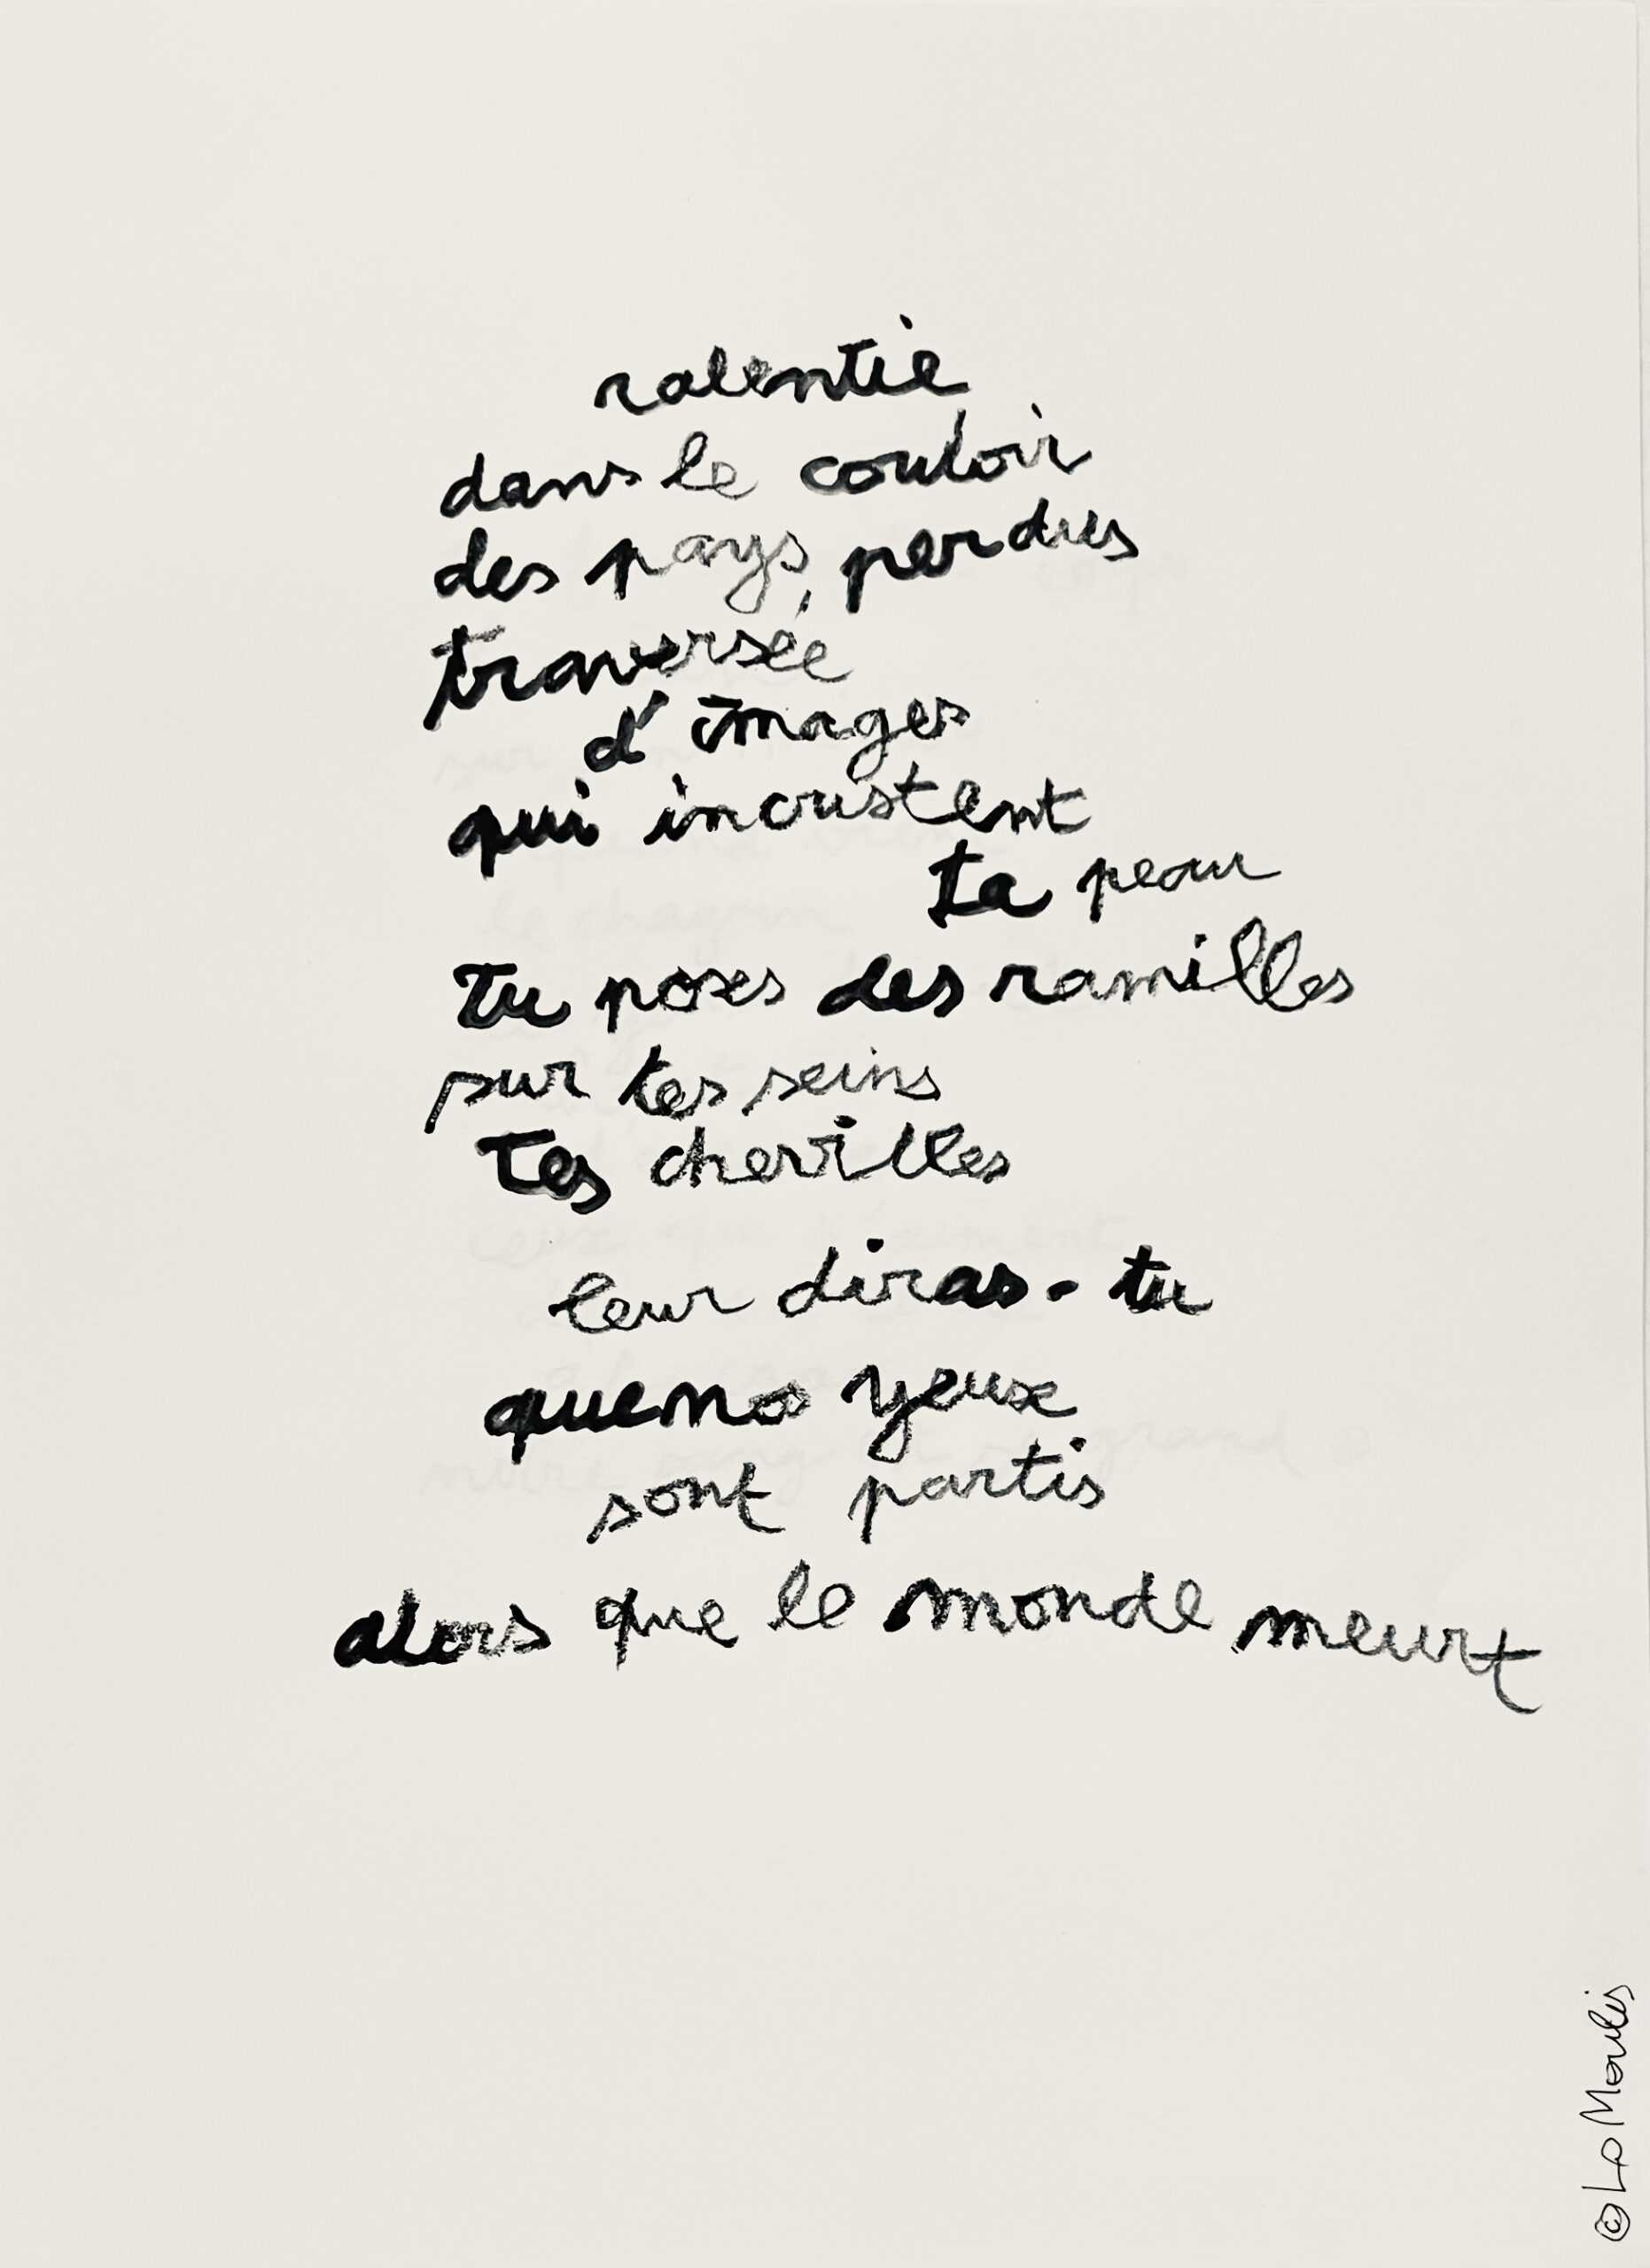 ralentie
dans le couloir
des pays perdus
traversée
d'images
qui incrustent
ta peau
tu poses des ramilles
sur tes seins
tes chevilles
leur diras-tu
que nos yeux
sont partis
alors que le monde meurt
© Lo Moulis